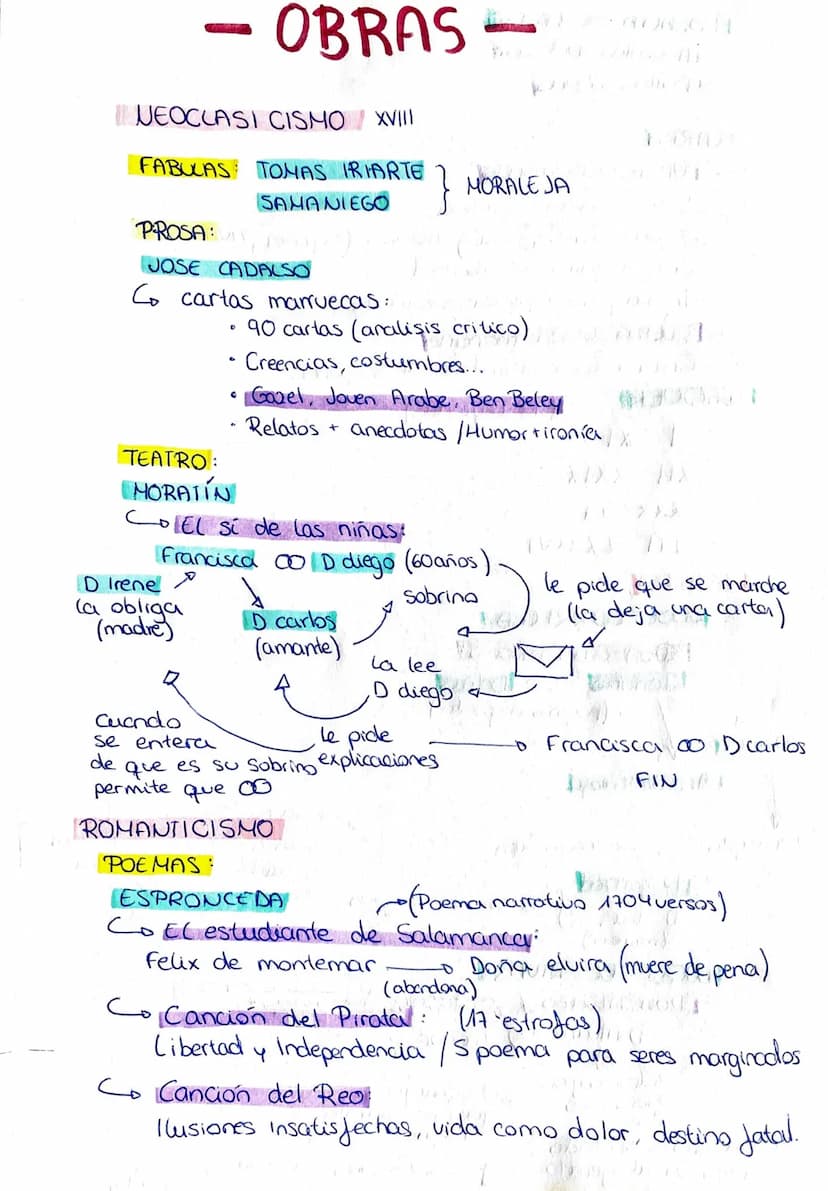 - OBRAS -
NEOCLASICISMO XVIII
FABULAS: TOMAS IRIARTE
SAMANIEGO
} MORALEJA
PROSA:
JOSE CADALSO
↳ cartas marruecas:
• 90 cartas (analisis critico)
• Creencias, costumbres...
• Gazel, Joven Arabe, Ben Beley
• Relatos + anecdotas / Humor + ironía
TEATRO:
MORATÍN
↳ El sí de las niñas:
Francisca ∞ D diego (60 años)
D Irene
la obliga
(madre)
D carlos
(amante)
sobrino
le pide que se marche
(la deja una carta)
la lee
D diego
le pide
explicaciones
Cuando
se entera
de que es su sobrino
permite que ∞
Francisca ∞ D carlos
FIN
ROMANTICISMO
POEMAS:
ESPRONCEDA
(Poema narrativo 1704 versos)
↳ El estudiante de Salamanca:
Felix de montemar → Doña elvira (muere de pena)
(abandona)
↳ Cancion del Pirata: (17 estrofas)
Libertad y Independencia / 5 poema para seres marginados
↳ Canción del Reo:
Ilusiones insatisfechas, vida como dolor, destino fatal.